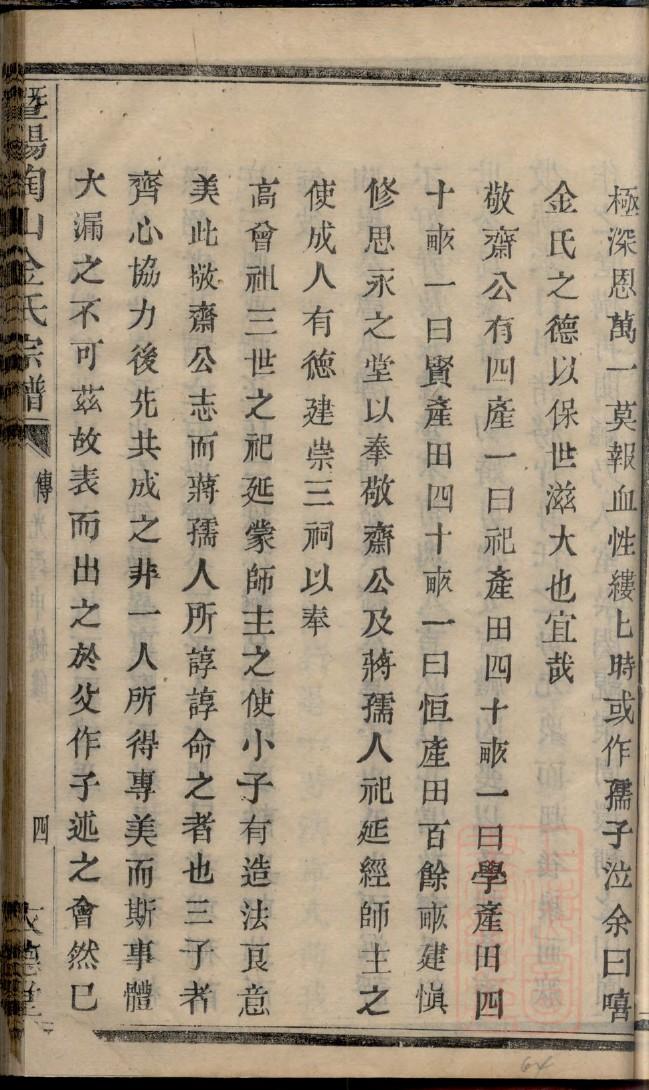 極深恩萬一莫報血性縷匕時或作孺子泣余曰嘻
金氏之德以保世滋大也宜哉
敬齋公有四產一曰祀產田四十畝一曰學產田四
十畝一曰賢產田四十畝一曰恒產田百餘畝建慎
修思永之堂以奉敬齋公及蔣孺人祀延經師主之
使成人有德建崇三祠以奉
高曾祖三世之祀延蒙師主之使小子有造法良意
美此敬齋公志而蔣孺人所諄諄命之者也三子者
齊心協力後先共成之非一人所得專美而斯事體
大漏之不可茲故表而出之於父作子述之會然巳
暨陽陶山金氏宗譜
傳
四